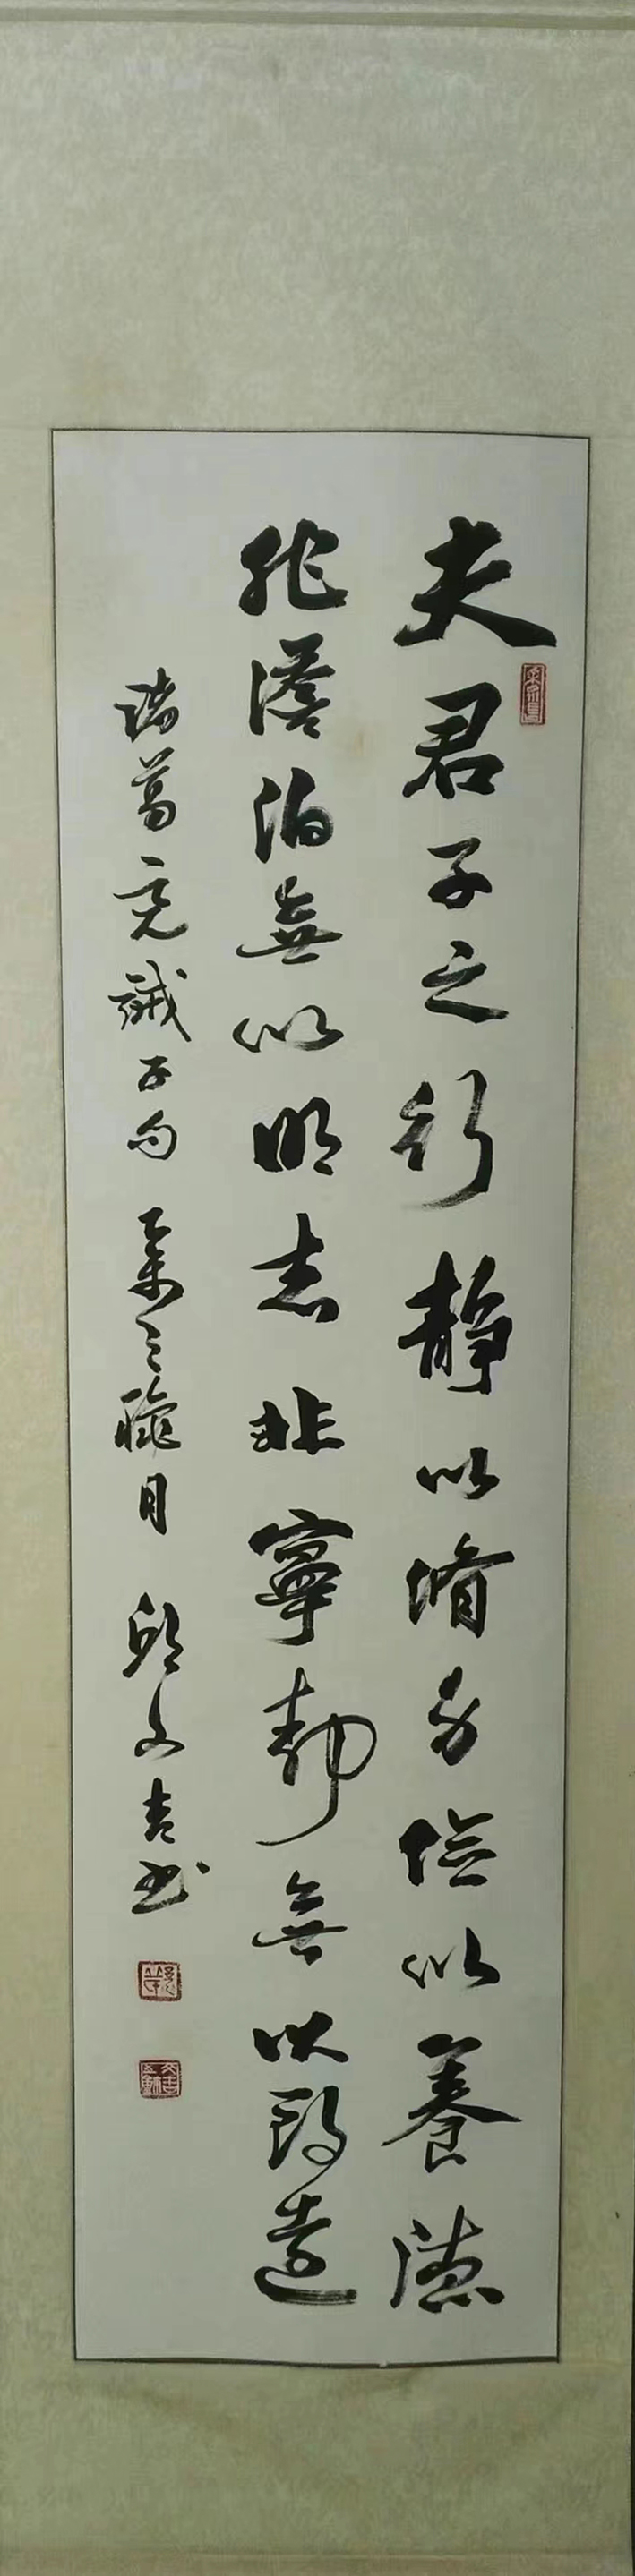 夫君子之行靜以脩身儉以養德
非澹泊無以明志非寧靜無以致遠
諸葛亮誡子句 乙未之臘月 邱文吉书